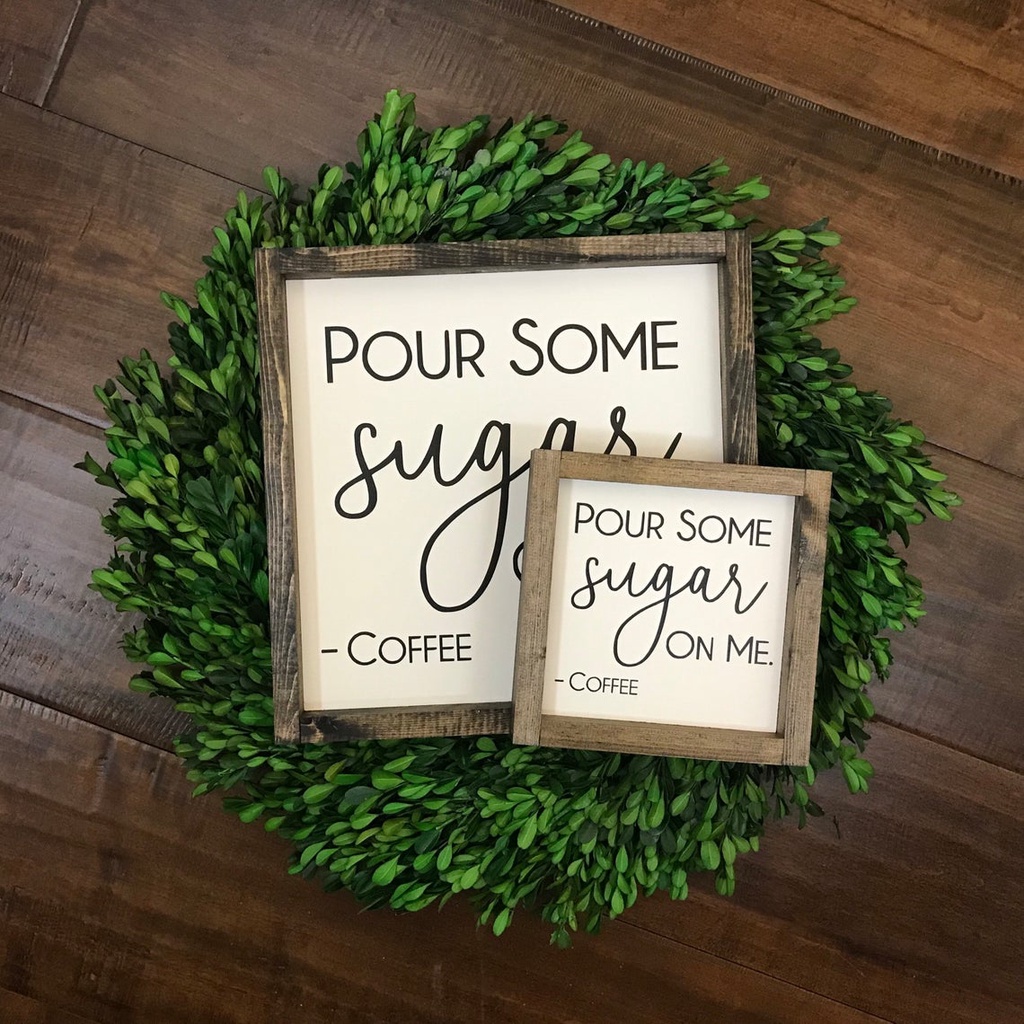 POUR SOME
sugar
- COFFEE
POUR SOME
sugar
ON ME.
- COFFEE